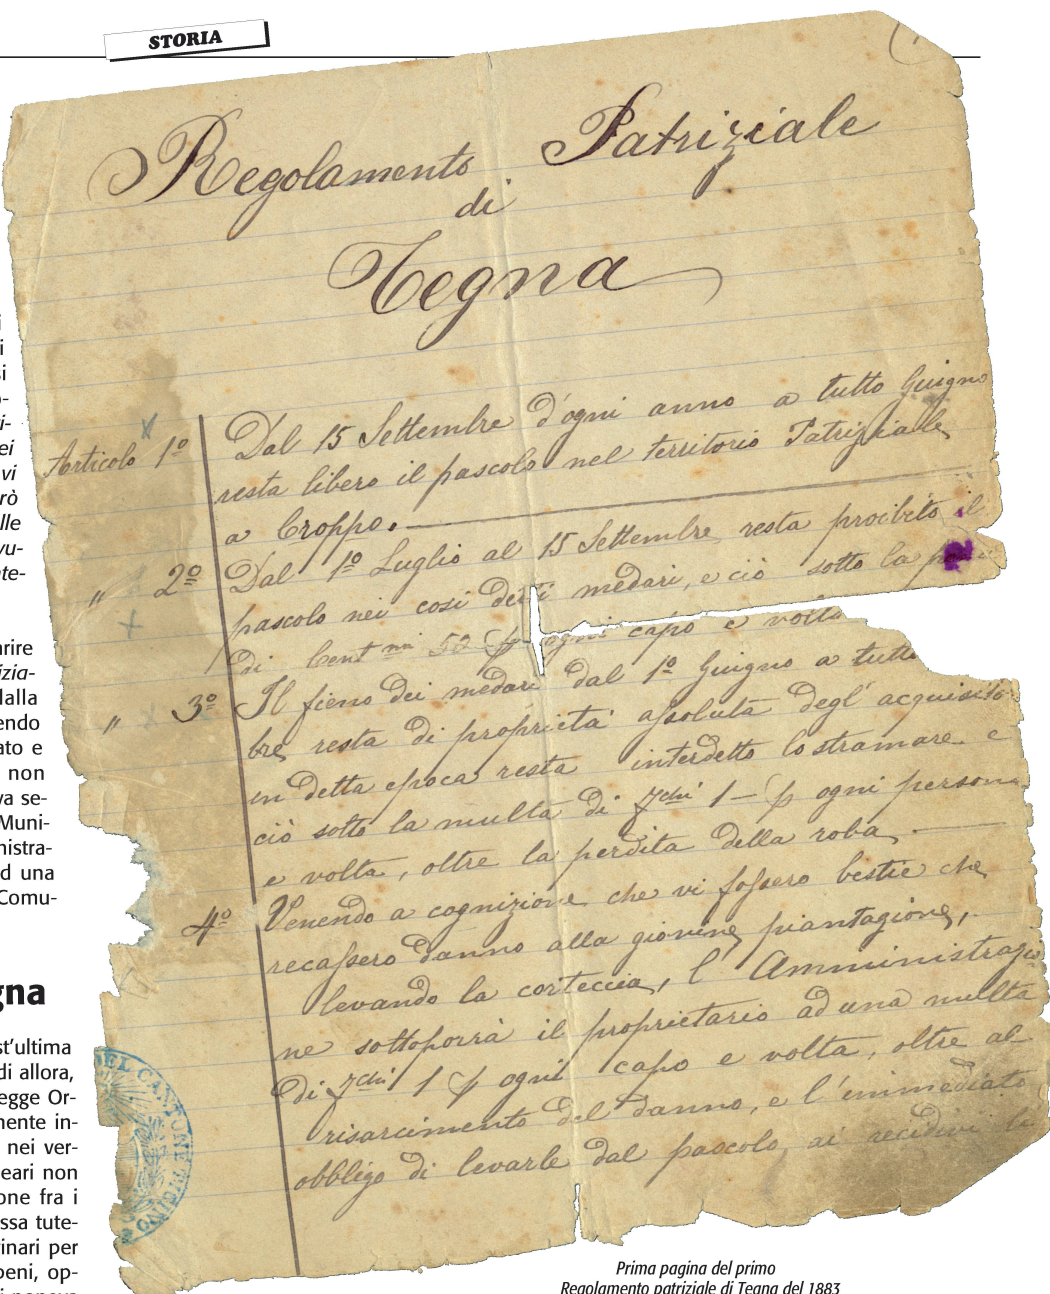 STORIA
Regolamento Patriziale
di
Tegna
Articolo 1º Dal 15 Settembre d'ogni anno a tutto Giugno
resta libero il pascolo nel territorio Patriziale
a Croppo.
" 2º Dal 1º Luglio al 15 Settembre resta proibito il
pascolo nei cosi detti medari, e ciò sotto la
di Cent mi 52 p ogni capo e volta
" 3º Il fieno dei medari dal 1º Giugno a tutto
bre resta di proprietà assoluta degl'
in detta epoca resta interdetto lo stramare e
ciò sotto la multa di fchi 1 – p ogni persona
e volta, oltre la perdita della roba.
4º Venendo a cognizione che vi fossero bestie che
recassero danno alla giovine piantagione,
levando la corteccia, l'Amministrazio
ne sottoporrà il proprietario ad una multa
di fchi 1 p ogni capo e volta, oltre al
risarcimento del danno, e l'immediato
obbligo di levarle dal pascolo, ai recidivi
DEL CANTONE TICINO
i
i
si
o-
ri-
ei
vi
rò
lle
vu-
nte-
arire
izia-
dalla
endo
ato e
non
va se-
Muni-
nistra-
d una
Comu-
gna
st'ultima
di allora,
egge Or-
mente in-
nei ver-
eari non
one fra i
ssa tute-
inari per
beni, op-
Prima pagina del primo
Regolamento patriziale di Tegna del 1883